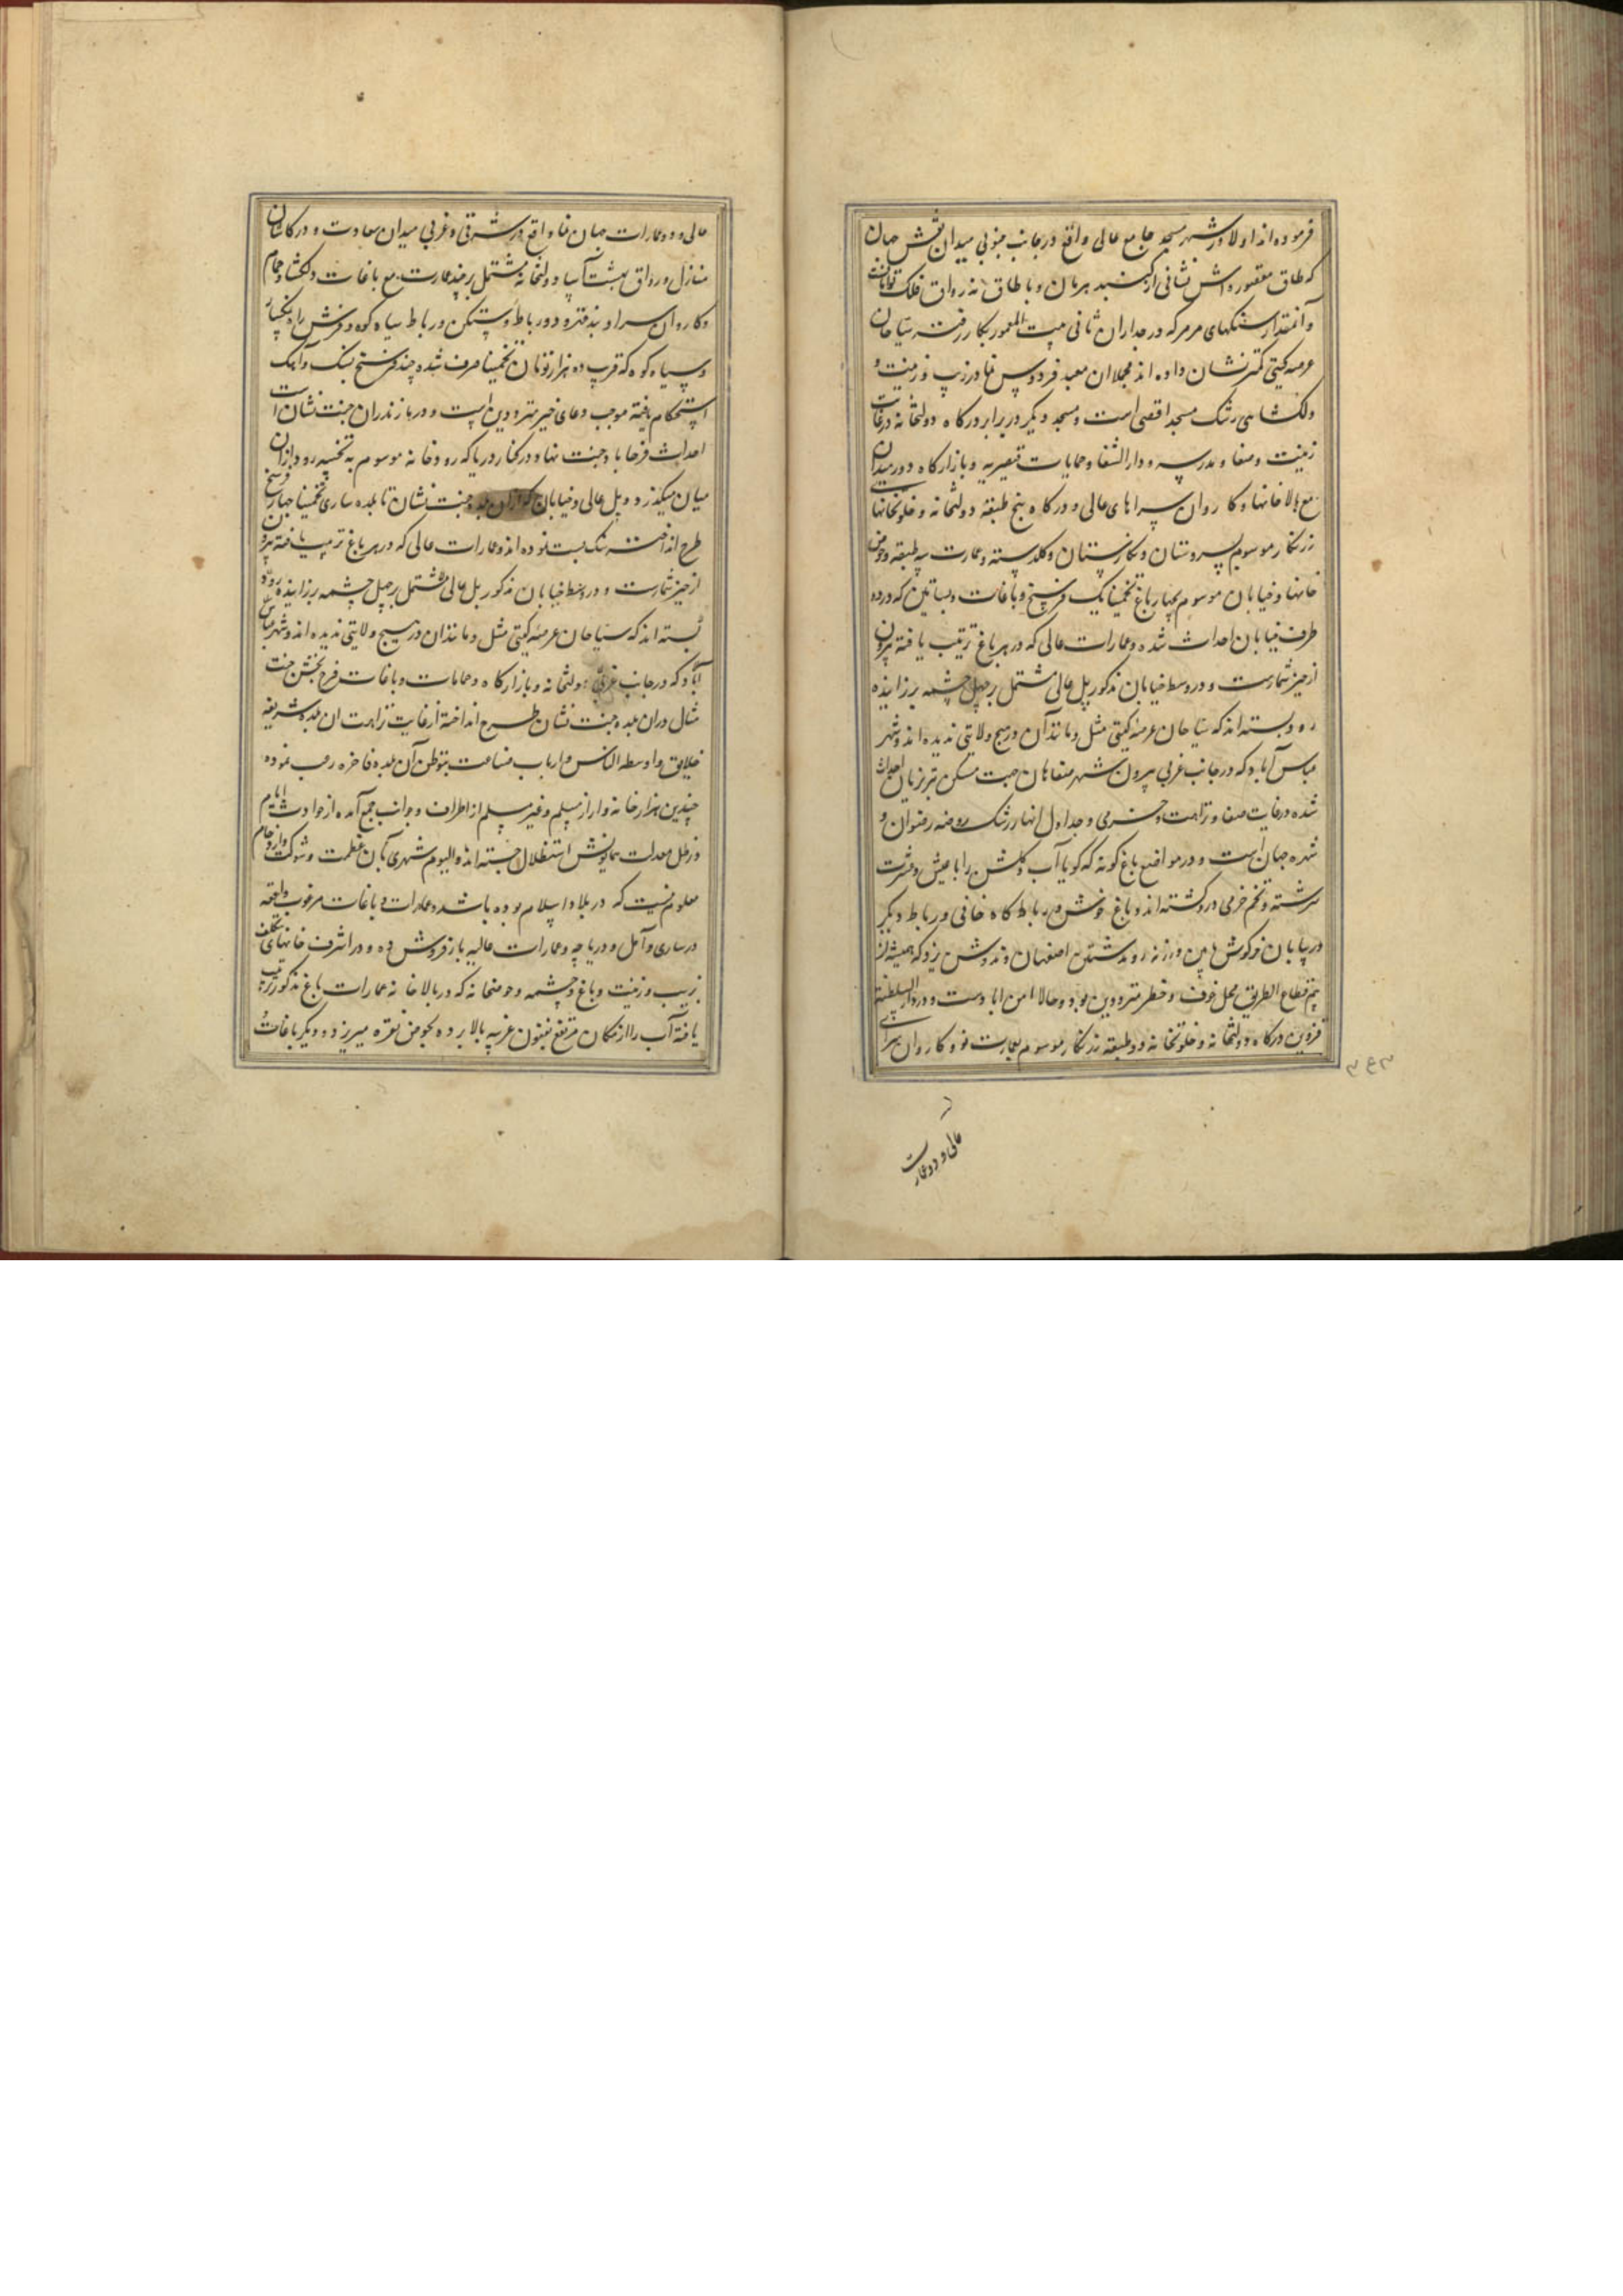 فرموده‌اند اولا در شهر مسجد جامع عالی واقع در جانب جنوبی میدان نقش جهان
که طاق مقصوره‌اش نشانی از گنبد هرمان و با طاق نه رواق فلک توامان
و آنمقدار سنگهای مرمر که در جداران ثانی بیت المعمور بکار رفته سیاحان
عرصه گیتی کمتر نشان داده اند مجملا ان معبد فردوس نما در زیب و زینت و
دلگشایی رشک مسجد اقصی است و مسجد دیگر در برابر درگاه دولتخانه در غایت
زینت و صفا و مدرسه و دار الشفا و حمامات قیصریه و بازارگاه دور میدان
مع بالاخانها و کاروان سراهای عالی و درگاه پنج طبقه دولتخانه و خلوتخانهای
زرنگار موسوم بسروستان و نگارستان و گلدسته و عمارت سه طبقه و حوض
خانها و خیابان موسوم بچهار باغ تخمینا یک فرسخ و باغات و بساتین که در دو
طرف خیابان احداث شده و عمارات عالی که در هر باغ ترتیب یافته بیرون
از حیز شمارست و در وسط خیابان مذکور پل عالی مشتمل بر چهل چشمه بر زاینده
رود بسته اند که سیاحان عرصه گیتی مثل و مانند آن در هیچ ولایتی ندیده اند و شهر
عباس آباد که در جانب غربی بیرون شهر صفاهان جهت مسکن تبرزیان احداث
شده در غایت صفا و نزاهت و خرمی و جداول انهار رشک روضه رضوان و
شده جهان است و در مواضع باغ گونه که گویا آب و گلش را با عیش و عشرت
سرشته و تخم خرمی در و کشته اند و باغ خوش و رباط گاه خانی و رباط دیگر
در بیابان خرگوش مابین ورزنه رودشتین اصفهان و ندوشن یزد که همیشه از
بیم قطاع الطریق محل خوف و خطر مترددین بود و حالا امن اباد ست و در دار السلطنه
قزوین درگاه دولتخانه و خلوتخانه دو طبقه زرنگار موسوم بعمارت نو و کاروان سرای
عالی و دو عمارت
۳۴۳
عالی و دو عمارات جهان نما واقع در شرقی و غربی میدان سعادت و در کاشان
منازل و رواق بهشت آسا و دولتخانه مشتمل بر چند عمارت مع باغات دلگشا و حمام
و کاروان سرا و بند قهرود و رباط و سنگن و رباط سیاه کوه و فرش راه نمکسار
و سیاه کوه که قرب ده هزار تومان تخمینا صرف شده چند فرسخ بسنگ و آهک
استحکام یافته موجب دعای خیر مترددین است و در مازندران جنت نشان است
احداث فرحاباد جنت نما و در کنار دریا که رودخانه موسوم به تجینه رود از ان
میان میگذرد و پل عالی و خیابان که از ان بلده جنت نشان تا بلده ساری تخمینا چهار فرسخ
طرح انداخته سنگ بست نموده اند و عمارات عالی که در هر باغ ترتیب یافته بیرون
از حیز شمارست و در وسط خیابان مذکور پل عالی مشتمل بر چهل چشمه بر زاینده رود
بسته اند که سیاحان عرصه گیتی مثل و مانند ان در هیچ ولایتی ندیده اند و شهر عباس
آباد که در جانب غربی دولتخانه و بازارگاه و حمامات و باغات فرح بخش جنت
مثال دران بلده جنت نشان طرح انداخته از غایت نزاهت ان بلده شریفه
خلایق و اوسط الناس و ارباب مناعت بتوطن آن بلده فاخره رغب نموده
چندین هزار خانه وار از مسلم و غیر مسلم از اطراف و جوانب جمع آمده از حوادث ایام
در ظل معدلت همایونش استظلال جسته اند و الیوم شهری بآن عظمت و شوکت و ازدحام
معلوم نیست که در بلاد اسلام بوده باشد و عمارات و باغات مرغوب واقعه
در ساری و آمل و دریاچه و عمارات عالیه بارفروش ده و در اشرف خانهای بتکلف
بزیب و زینت و باغ و چشمه و حوضخانه که در بالا خانه عمارات باغ مذکور ترتیب
یافته آب را از مکان مرتفع بفنون غریبه بالا برده بحوض نقره میریزد و دیگر باغات